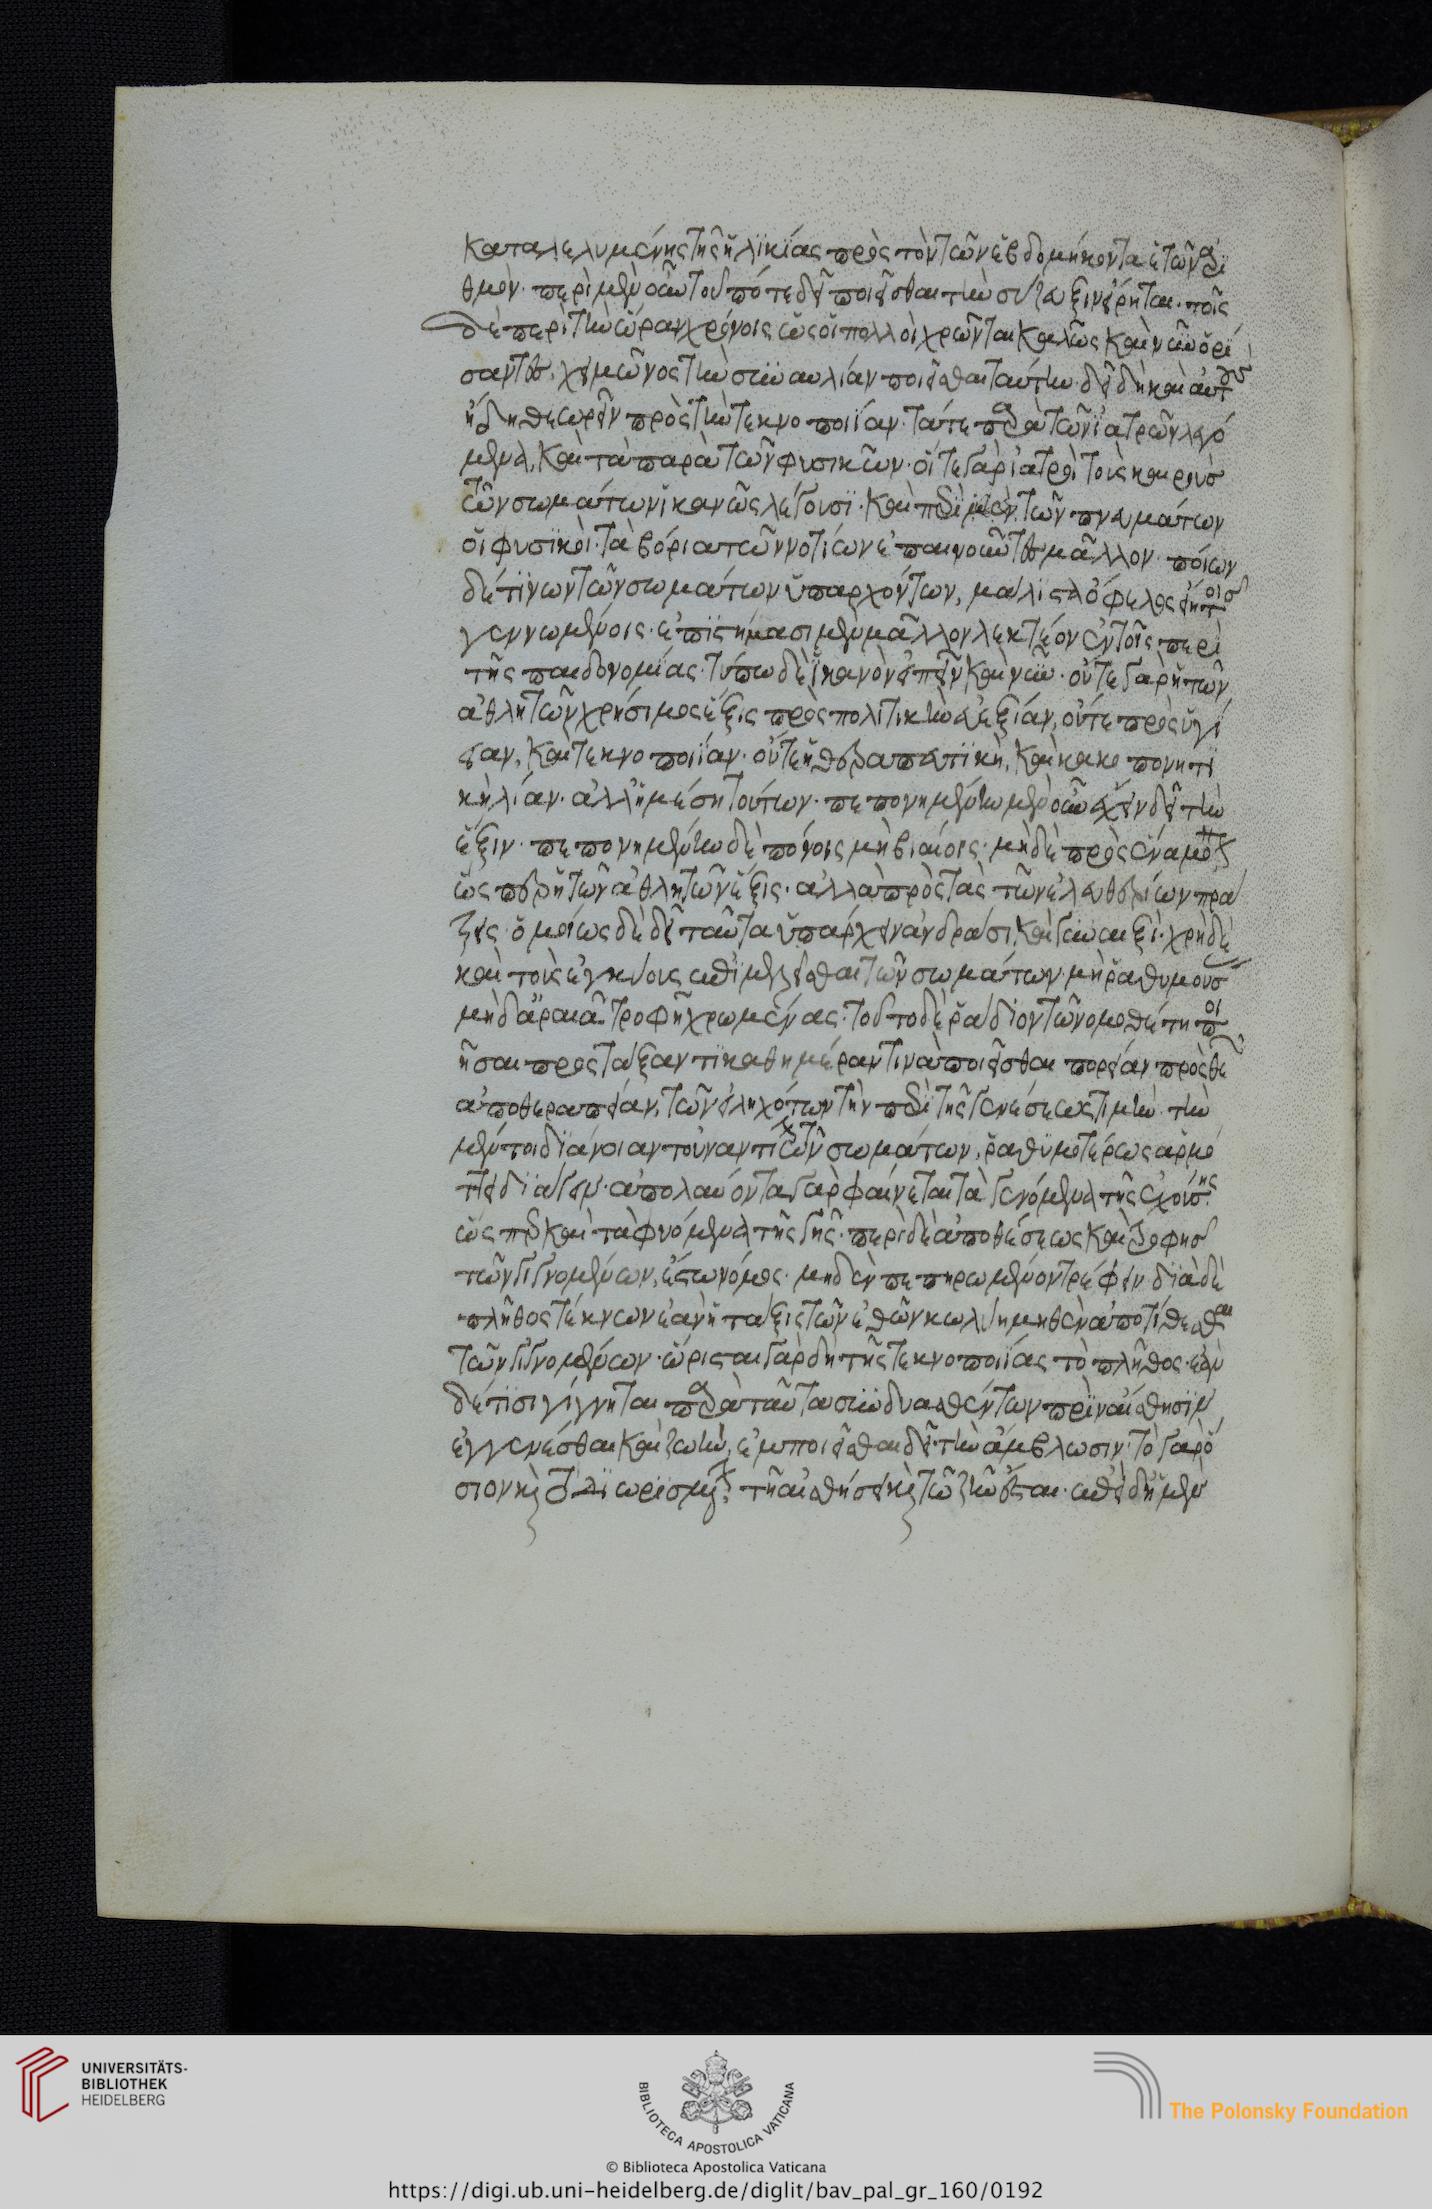 καταλελυμένης τῆς ἡλικίας πρὸς τὸν τῶν ἑβδομήκοντα ἐτῶν ἀρι
θμόν. περὶ μὲν οὖν τοῦ πότε δεῖ ποιεῖσθαι τὴν σύζευξιν εἴρηται. τοῖς
δὲ περὶ τὴν ὥραν χρόνοις ὡς οἱ πολλοὶ χρῶνται καλῶς καὶ νῦν ὁρί
σαντες χειμῶνος τὴν συναυλίαν ποιεῖσθαι ταύτην. δεῖ δὴ καὶ αὐτοὺς
ἤδη θεωρεῖν πρὸς τὴν τεκνοποιίαν. τά τε παρὰ τῶν ἰατρῶν λεγό
μενα, καὶ τὰ παρὰ τῶν φυσικῶν. οἵ τε γὰρ ἰατροὶ τοὺς καιροὺς
τῶν σωμάτων ἱκανῶς λέγουσι. καὶ περὶ τῶν πνευμάτων
οἱ φυσικοί. τὰ βόρια τῶν νοτίων ἐπαινοῦντες μᾶλλον. ποίων
δέ τινων τῶν σωμάτων ὑπαρχόντων, μάλιστ' ὄφελος εἴη τοῖς
γεννωμένοις. ἐπιστήμασι μὲν μᾶλλον λεκτέον ἐν τοῖς περὶ
τῆς παιδονομίας. τύπω δὲ ἱκανὸν εἰπεῖν καὶ νῦν. οὔτε γὰρ ἡ τῶν
ἀθλητῶν χρήσιμος ἕξις πρὸς πολιτικὴν εὐεξίαν, οὔτε πρὸς ὑγί
ειαν, καὶ τεκνοποιίαν. οὔτε ἡ θεραπευτικὴ, καὶ κακοπονητι
κὴ λίαν. ἀλλ' ἡ μέση τούτων. πεπονημένην μὲν οὖν ἔχειν δεῖ τὴν
ἕξιν. πεπονημένην δὲ πόνοις μὴ βιαίοις. μὴ δὲ πρὸς ἕνα μόνον
ὥσπερ ἡ τῶν ἀθλητῶν ἕξις. ἀλλὰ πρὸς τὰς τῶν ἐλευθερίων πρά
ξεις. ὁμοίως δὲ δεῖ ταῦτα ὑπάρχειν ἀνδράσι καὶ γυναιξί. χρὴ δὲ
καὶ τοὺς ἐγκύους ἐπιμελεῖσθαι τῶν σωμάτων. μὴ ῥαθυμούσ
μὴδ' ἀραιᾶ τροφῆ χρωμένας. τοῦτο δὲ ῥάδιον τῶ νομοθέτη ποι
ῆσαι προστάξαντι καθημέραν τινὰ ποιεῖσθαι πορείαν πρὸς θε
ἀποθεραπείαν, τῶν εἰληχότων τὴν περὶ τῆς γενέσεως τιμήν. τὴν
μέντοι διάνοιαν τοὐναντίον τῶν σωμάτων, ῥαθυμοτέρως ἁρμό
ττει διάγειν. ἀπολαύοντα γὰρ φαίνεται τὰ γενόμενα τῆς ἐχούσης
ὥσπερ καὶ τὰ φυόμενα τῆς γῆς. περὶ δὲ ἀποθέσεως καὶ τροφῆς
τῶν γιγνομένων, ἔστω νόμος. μηδὲν πεπηρωμένον τρέφειν. διὰ δὲ
πλῆθος τέκνων ἐὰν ἡ τάξις τῶν ἐθῶν κωλύη μηθὲν ἀποτίθεσθαι
τῶν γιγνομένων. ὥρισται γὰρ δὴ τῆς τεκνοποιίας τὸ πλῆθος. ἐὰν
δέ τισι γίγνηται παρὰ ταῦτα συνδυασθέντων πρὶν αἴσθησιν
ἐγγενέσθαι καὶ ζωὴν, ἐμποιεῖσθαι δεῖ τὴν ἄμβλωσιν. τὸ γὰρ ὅ
σιον καὶ τὸ διωρισμένον τῆ αἰσθήσει καὶ τῶ ζῆν ἔσται. ἐπεὶ δ' ἡ μὲν
UNIVERSITÄTS-
BIBLIOTHEK
HEIDELBERG
BIBLIOTECA APOSTOLICA VATICANA
The Polonsky Foundation
© Biblioteca Apostolica Vaticana
https://digi.ub.uni-heidelberg.de/diglit/bav_pal_gr_160/0192